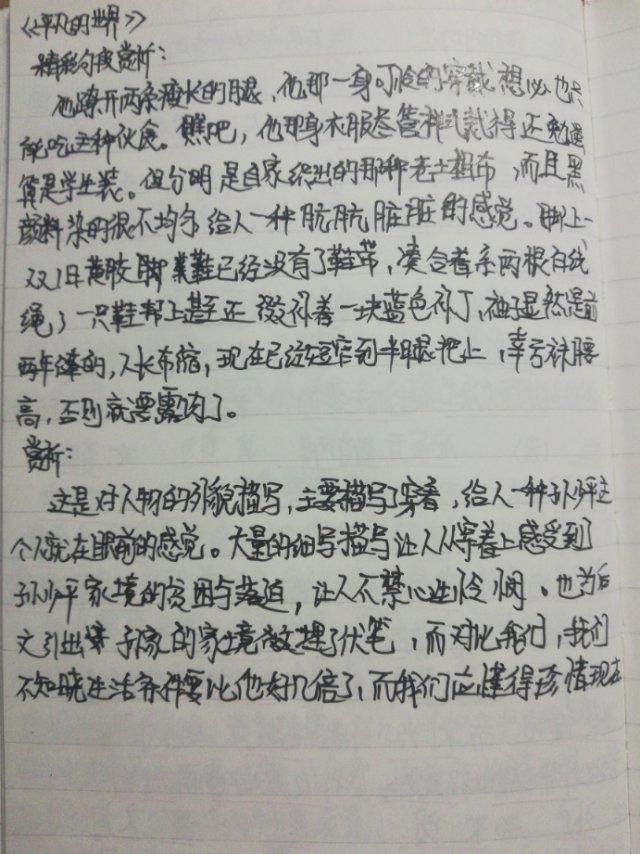 《平凡的世界》
精彩句段赏析：
他撩开两条瘦长的腿，他那一身可怜的穿戴想必也只
能吃这种伙食。瞧吧，他那身衣服尽管样式裁得还勉强
算是学生装。但分明是自家织出的那种老土粗布，而且黑
颜料染的很不均匀给人一种肮肮脏脏的感觉。脚上一
双旧黄胶脚鞋已经没有了鞋带，凑合着系两根白线
绳，一只鞋帮上甚至还缀补着一块蓝色补丁，裤子显然是前
两年缝的，人长布缩，现在已经短窄到半腿把上，幸亏袜腰
高，否则就要露肉了。
赏析：
这是对人物的外貌描写，主要描写了穿着，给人一种孙少平这
个人就在眼前的感觉。大量的细写描写让人从穿着上感受到了
孙少平家境的贫困与落迫，让人不禁心生怜悯。也为后
文引出孙家的家境故埋了伏笔，而对比我们，我们
不知晓生活条件要比他好几倍了，而我们应懂得珍惜现在